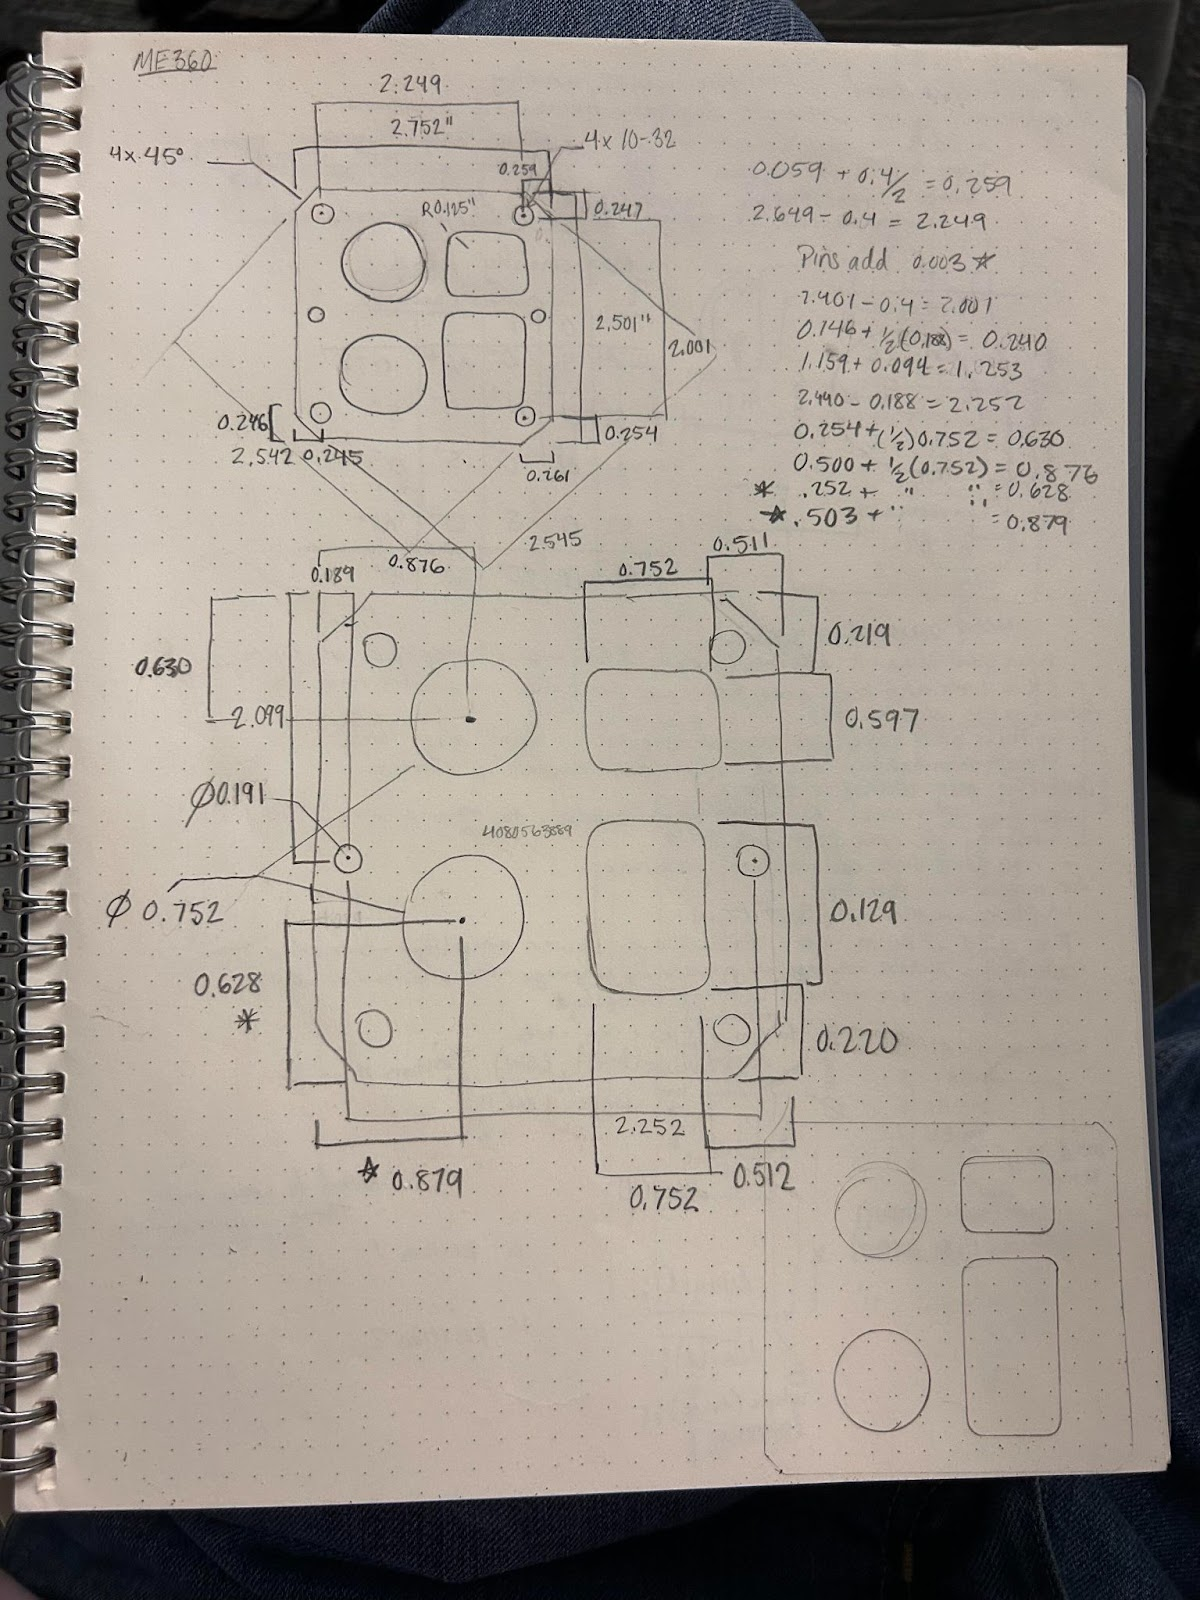 ME360
2.249
2.752"
4x 45°
4x 10-32
0.259
R0.125"
0.247
2.501"
2.001
0.246
2.542
0.245
0.254
0.261
0.059 + 0.4/2 = 0.259
2.649 - 0.4 = 2.249
Pins add 0.003 ☆
2.401 - 0.4 = 2.001
0.146 + ½(0.188) = 0.240
1.159 + 0.094 = 1.253
2.440 - 0.188 = 2.252
0.254 + (½)0.752 = 0.630
0.500 + ½(0.752) = 0.876
* .252 + " " = 0.628
☆ .503 + " = 0.879
2.545
0.876
0.189
0.752
0.511
0.219
0.630
2.099
0.597
Ø0.191
4080563889
Ø 0.752
0.129
0.628
*
0.220
2.252
☆ 0.879
0.752
0.512